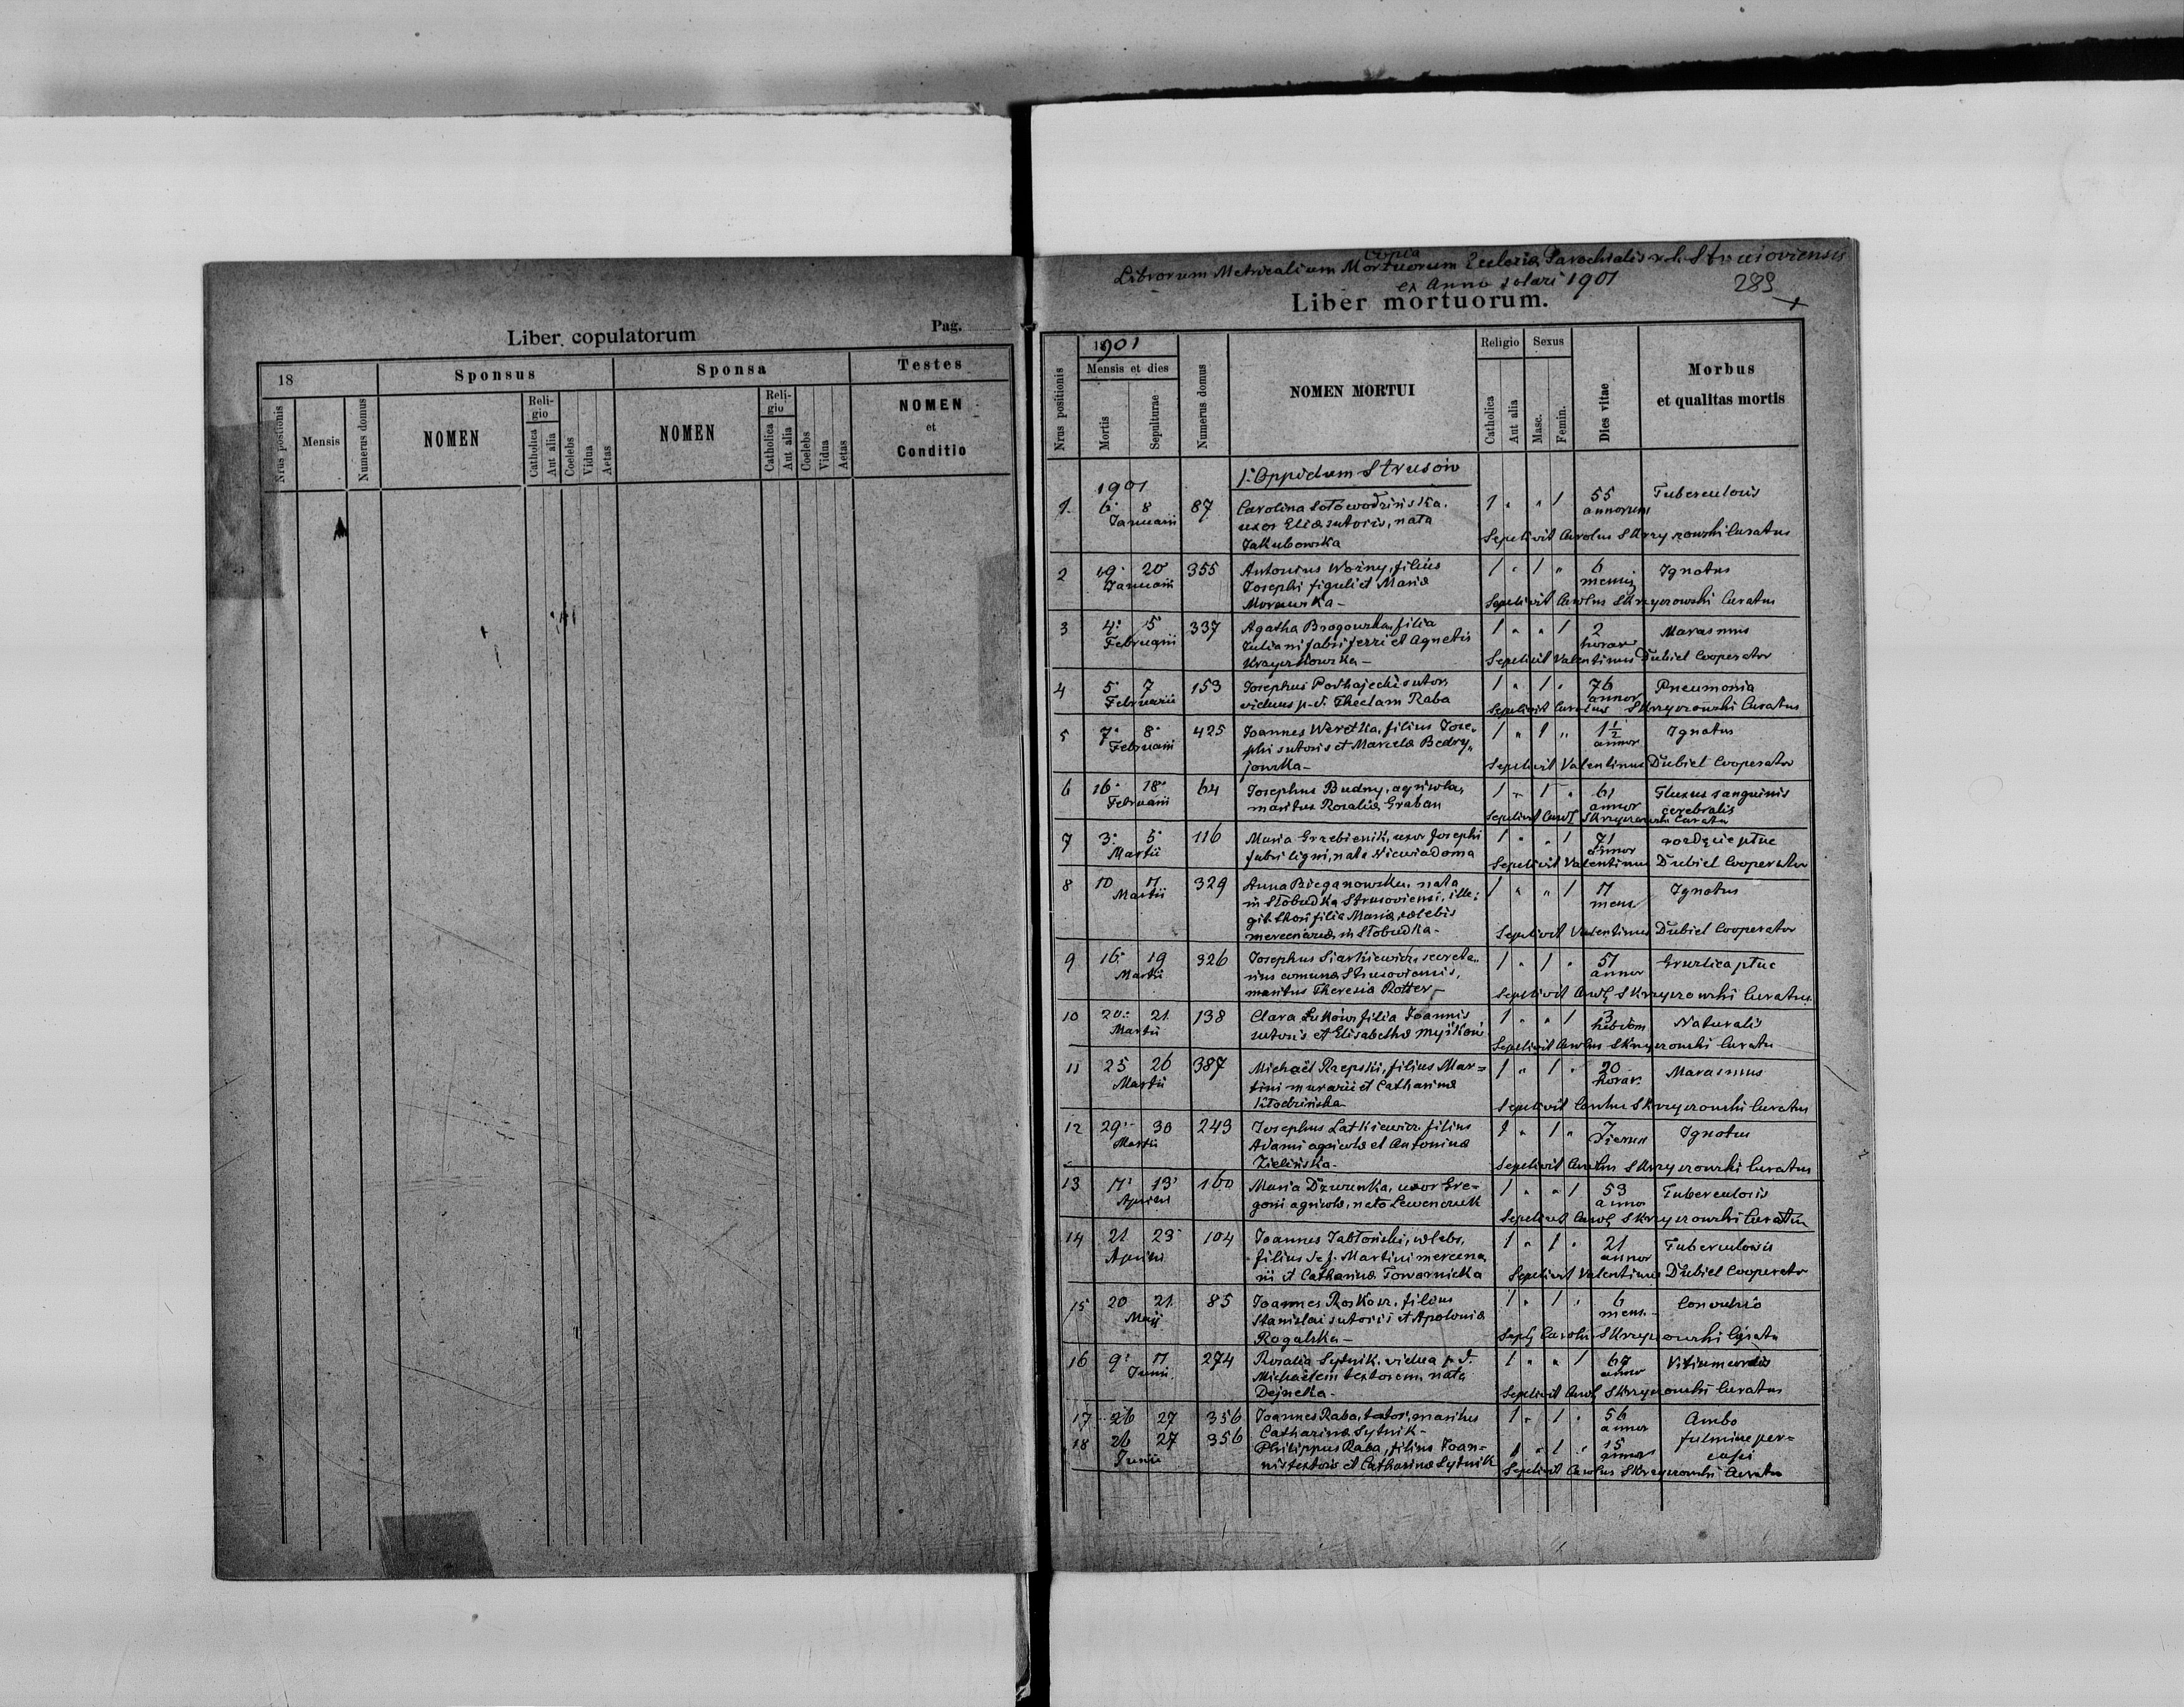 Liber copulatorum
Pag.
18
Sponsus
Sponsa
Testes
Nrus positionis
Mensis
Numerus domus
NOMEN
Religio
Catholica
Aut alia
Coelebs
Vidua
Aetas
NOMEN
Religio
Catholica
Aut alia
Coelebs
Vidua
Aetas
NOMEN
et
Conditio
Copia
Librorum Metricalium Mortuorum Ecclesiæ Parochialis r. l. Strusoviensis
ex Anno solari 1901
289
Liber mortuorum.
Nrus positionis
1901
Mensis et dies
Mortis
Sepulturae
Numerus domus
NOMEN MORTUI
Religio
Catholica
Aut alia
Sexus
Masc.
Femin.
Dies vitae
Morbus
et qualitas mortis
1. Oppidum Strusów
1901
1. 6 8 87 Carolina Sołowodzińska, 1 " " 1 55 Tuberculosis
Januarii uxor Eliæ sutoris, nata annorum
Jakubowska Sepelivit Carolus Skrzyszowski Curatus
2 19 20 355 Antonius Woźny, filius 1 " 1 " 6 Ignotus
Januarii Josephi figuli et Mariæ mensis
Morawska - Sepelivit Carolus Skrzyszowski Curatus
3 4 5 337 Agatha Brogowska, filia 1 " " 1 2 Marasmus
Februarii Juliani fabri ferri et Agnetis horar
Sepelivit Valentinus Dubiel Cooperator
4 5 7 153 Josephus Podhajecki sutor, 1 " 1 " 76 Pneumonia
Februarii viduus p. d. Theclam Raba annor
Sepelivit Carolus Skrzyszowski Curatus
5 7 8 425 Joannes Weretka, filius Jose„ 1 " 1 " 1 1/2 Ignotus
Februarii phi sutoris et Marcelæ Bedry„ annor
jowska - Sepelivit Valentinus Dubiel Cooperator
6 16 18 64 Josephus Budny, agricola, 1 " 1 " 61 Fluxus sanguinis
Februarii maritus Rosaliæ Graban annor cerebralis
Sepelivit Carol Skrzyszowski Curatus
7 3 5 116 Maria Grzebienik, uxor Josephi 1 " " 1 71
Martii fabri ligni, nata Niewiadoma annor
Sepelivit Valentinus Dubiel Cooperator
8 10 11 329 Anna Bieganowska, nata 1 " " 1 11 Ignotus
Martii in Słobudka Strusoviensi, ille= mens
git. thori filia Mariæ, cælebis
mercenariæ, in Słobudka - Sepelivit Valentinus Dubiel Cooperator
9 16 19 326 Josephus Siarkiewicz, secreta„ 1 " 1 " 51 Gruźlica płuc
Martii rius comunæ Strusoviensis, annor
maritus Theresiæ Rotter - Sepelivit Carol Skrzyszowski Curatus
10 20 21 138 Clara Łuków filia Joannis 1 " " 1 3 Naturalis
Martii sutoris et Elisabethæ Myśków hebdom
Sepelivit Carolus Skrzyszowski Curatus
11 25 26 387 Michaël Rzepski, filius Mar= 1 " 1 " 20 Marasmus
Martii tini murarii et Catharinæ horar.
Kłodzińska Sepelivit Carolus Skrzyszowski Curatus
12 29 30 243 Josephus Latkiewicz, filius 1 " 1 " 7 Ignotus
Martii Adami agricolæ et Antoninæ dierum
Zielińska - Sepelivit Carolus Skrzyszowski Curatus
13 11 13 160 Maria Dzwinka, uxor Gre= 1 " " 1 53 Tuberculosis
Aprilis gorii agricolæ, nata Lewenczuk annor
Sepelivit Carol Skrzyszowski Curatus
14 21 23 104 Joannes Jabłoński, cælebs, 1 " 1 " 21 Tuberculosis
Aprilis filius Martini mercena annor
rii et Catharinæ Towarnicka Sepelivit Valentinus Dubiel Cooperator
15 20 21 85 Joannes Roskosz, filius 1 " 1 " 6 Convulsio
Maji Stanislai sutoris et Apoloniæ mens.
Rogalska - Carolus Skrzyszowski Curatus
16 9 11 274 Rosalia Sytnik, vidua p. d. 1 " " 1 67 Vitium cordis
Junii Michaëlem textorem, nata annor
Dejneka - Sepelivit Carol Skrzyszowski Curatus
17 26 27 356 Joannes Raba, textor, maritus 1 " 1 " 56 Ambo
Catharinæ Sytnik - annor fulmine per=
18 26 27 356 Philippus Raba, filius Joan= 1 " 1 " 15 cussi
Junii nis textoris et Catharinæ Sytnik annor
Sepelivit Carolus Skrzyszowski Curatus